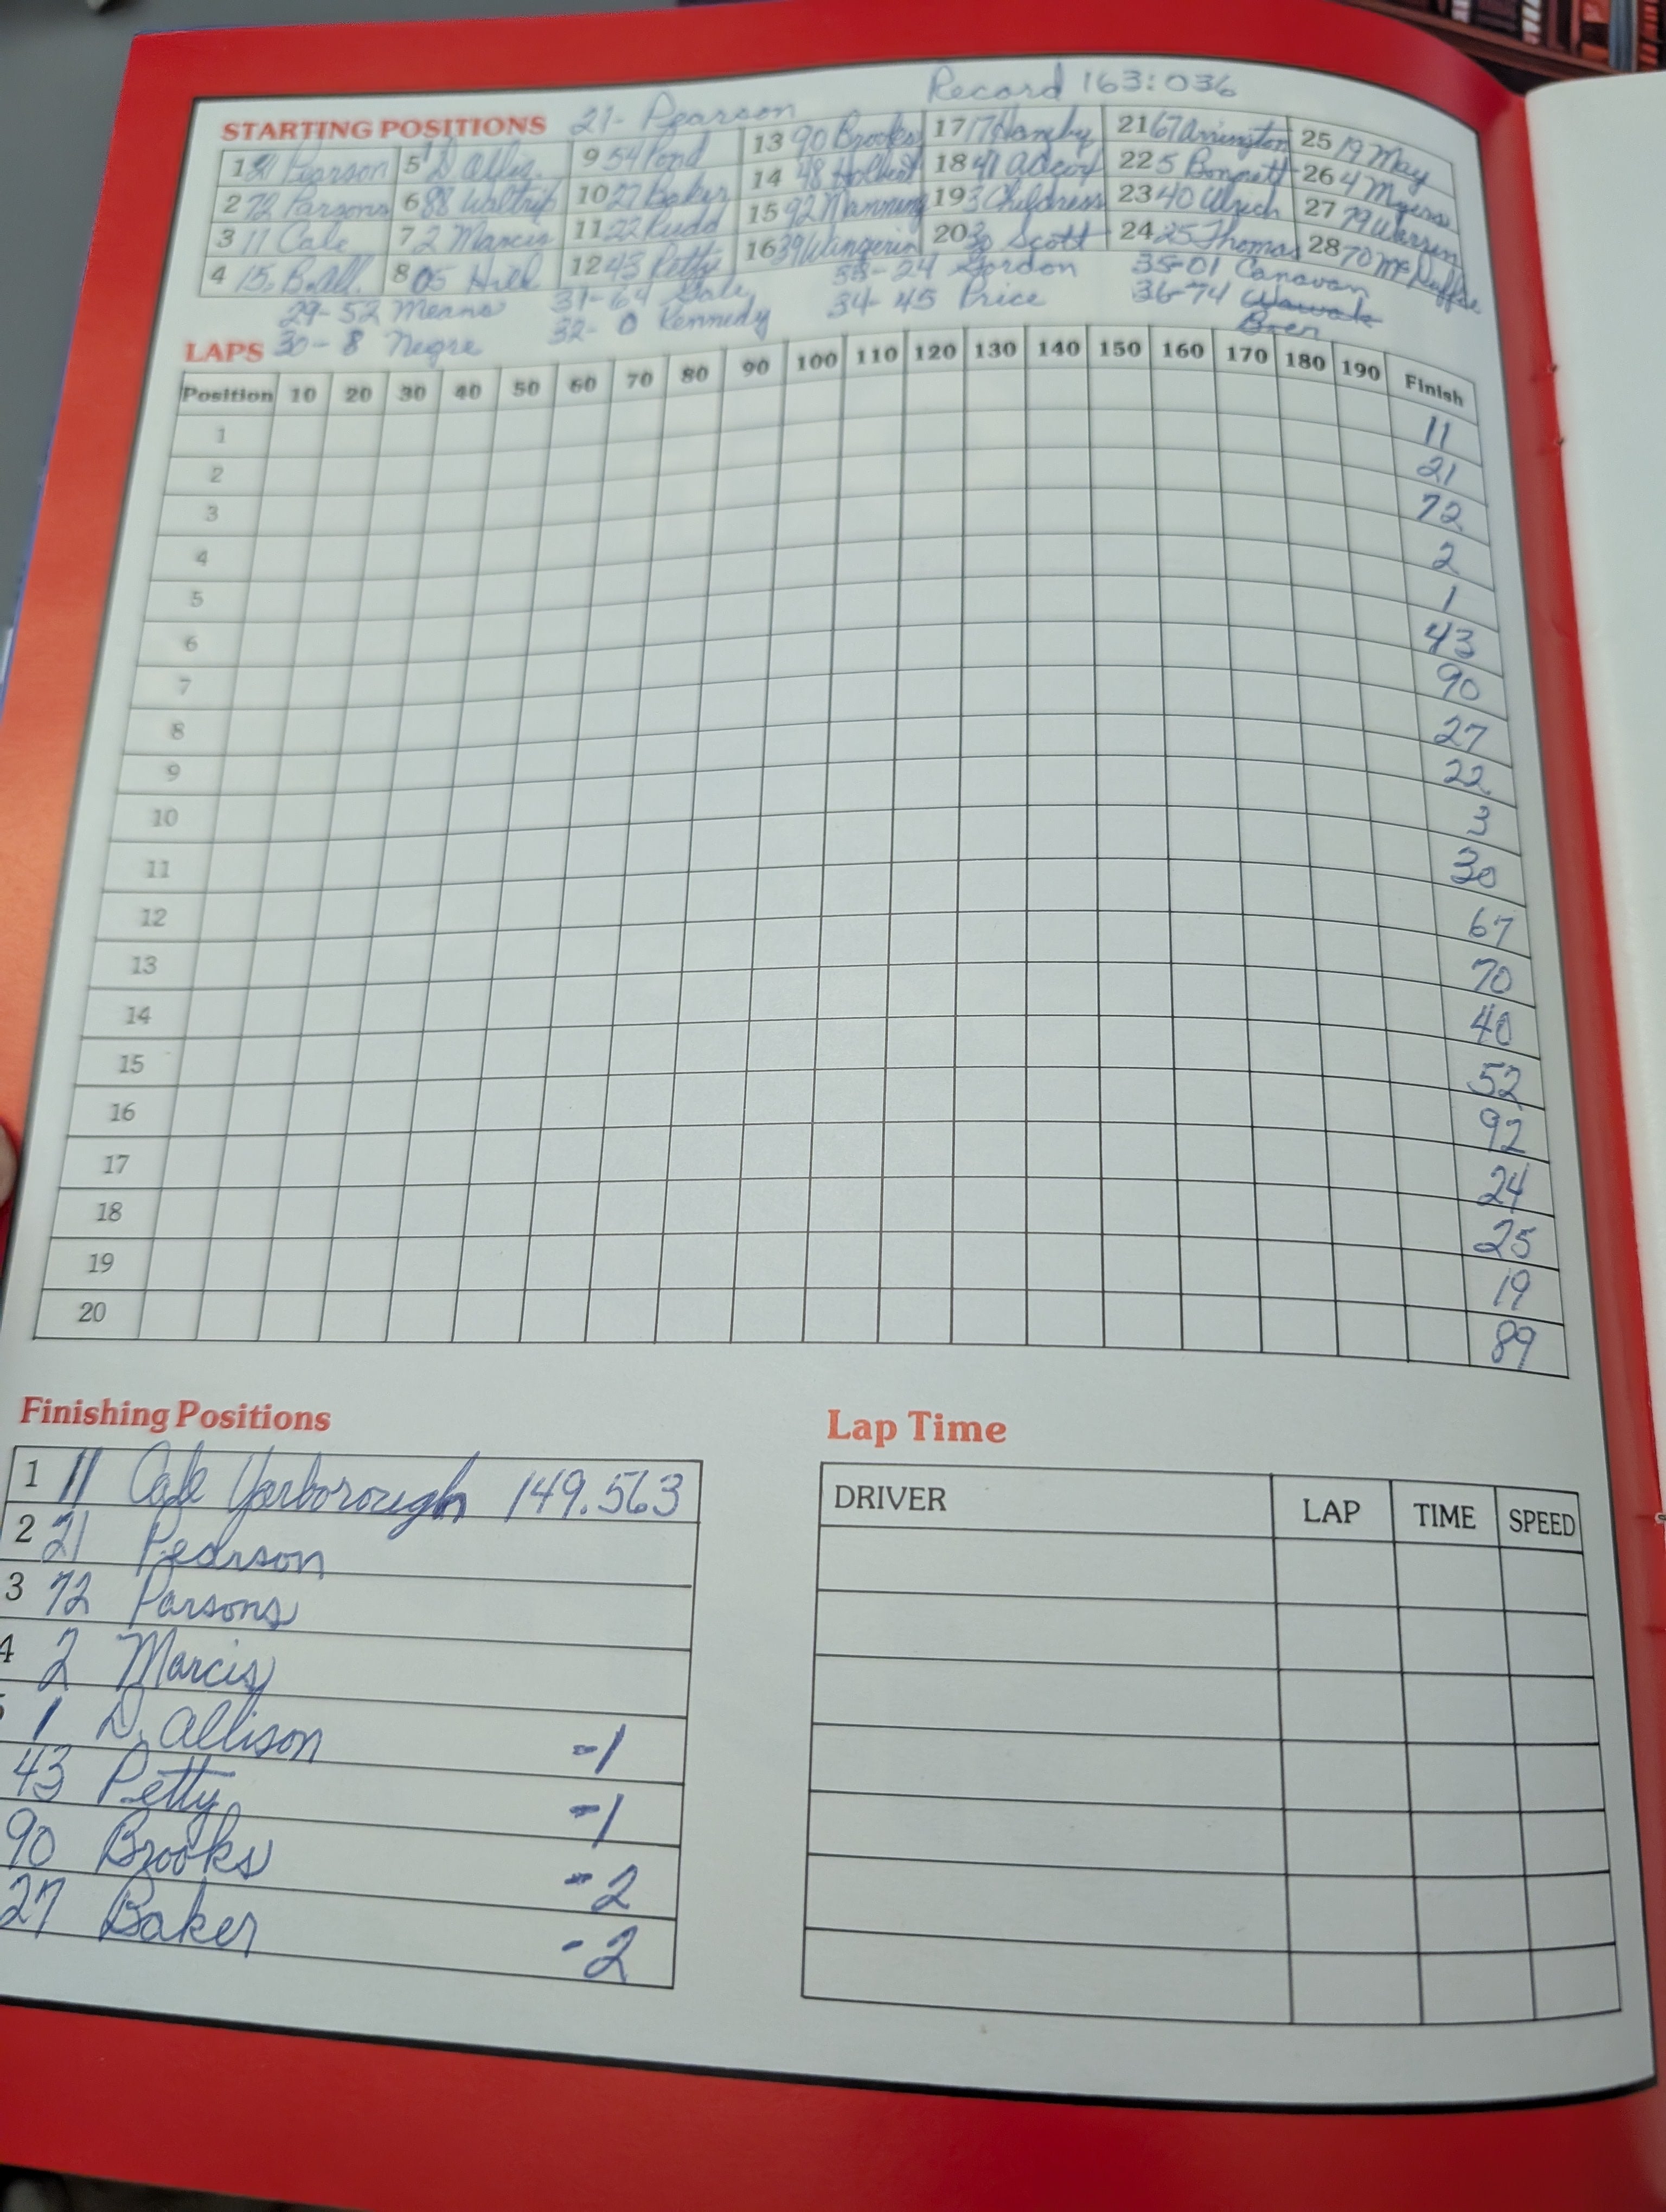 Record 163:036
STARTING POSITIONS 21- Pearson
1 21 Pearson 5 1 D. Allis. 9 54 Pond 13 90 Brooks 17 17 Hamby 21 67 Arrington 25 19 May
2 72 Parsons 6 88 Waltrip 10 27 Baker 14 48 Holbert 18 41 Adcox 22 5 Bonnett 26 4 Myers
3 11 Cale 7 2 Marcis 11 22 Rudd 15 92 Manning 19 3 Childress 23 40 Ulrich 27 79 Warren
4 15 B. All. 8 05 Hill 12 43 Petty 16 39 Wingerin 20 30 Scott 24 25 Thomas 28 70 McDuffie
29-52 Means 31-64 Gale 33-24 Gordon 35-01 Canavan
30-8 Negre 32-0 Kennedy 34-45 Price 36-74
LAPS
Position 10 20 30 40 50 60 70 80 90 100 110 120 130 140 150 160 170 180 190 Finish
1 11
2 21
3 72
4 2
5 1
6 43
7 90
8 27
9 22
10 3
11 30
12 67
13 70
14 40
15 52
16 92
17 24
18 25
19 19
20 89
Finishing Positions
1 11 Cale Yarborough 149.563
2 21 Pearson
3 72 Parsons
4 2 Marcis
1 D. Allison -1
43 Petty -1
90 Brooks -2
27 Baker -2
Lap Time
DRIVER LAP TIME SPEED